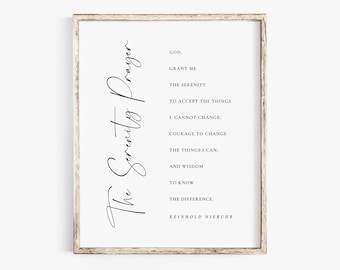 The Serenity Prayer
GOD,
GRANT ME
THE SERENITY
TO ACCEPT THE THINGS
I CANNOT CHANGE;
COURAGE TO CHANGE
THE THINGS I CAN;
AND WISDOM
TO KNOW
THE DIFFERENCE.
REINHOLD NIEBUHR